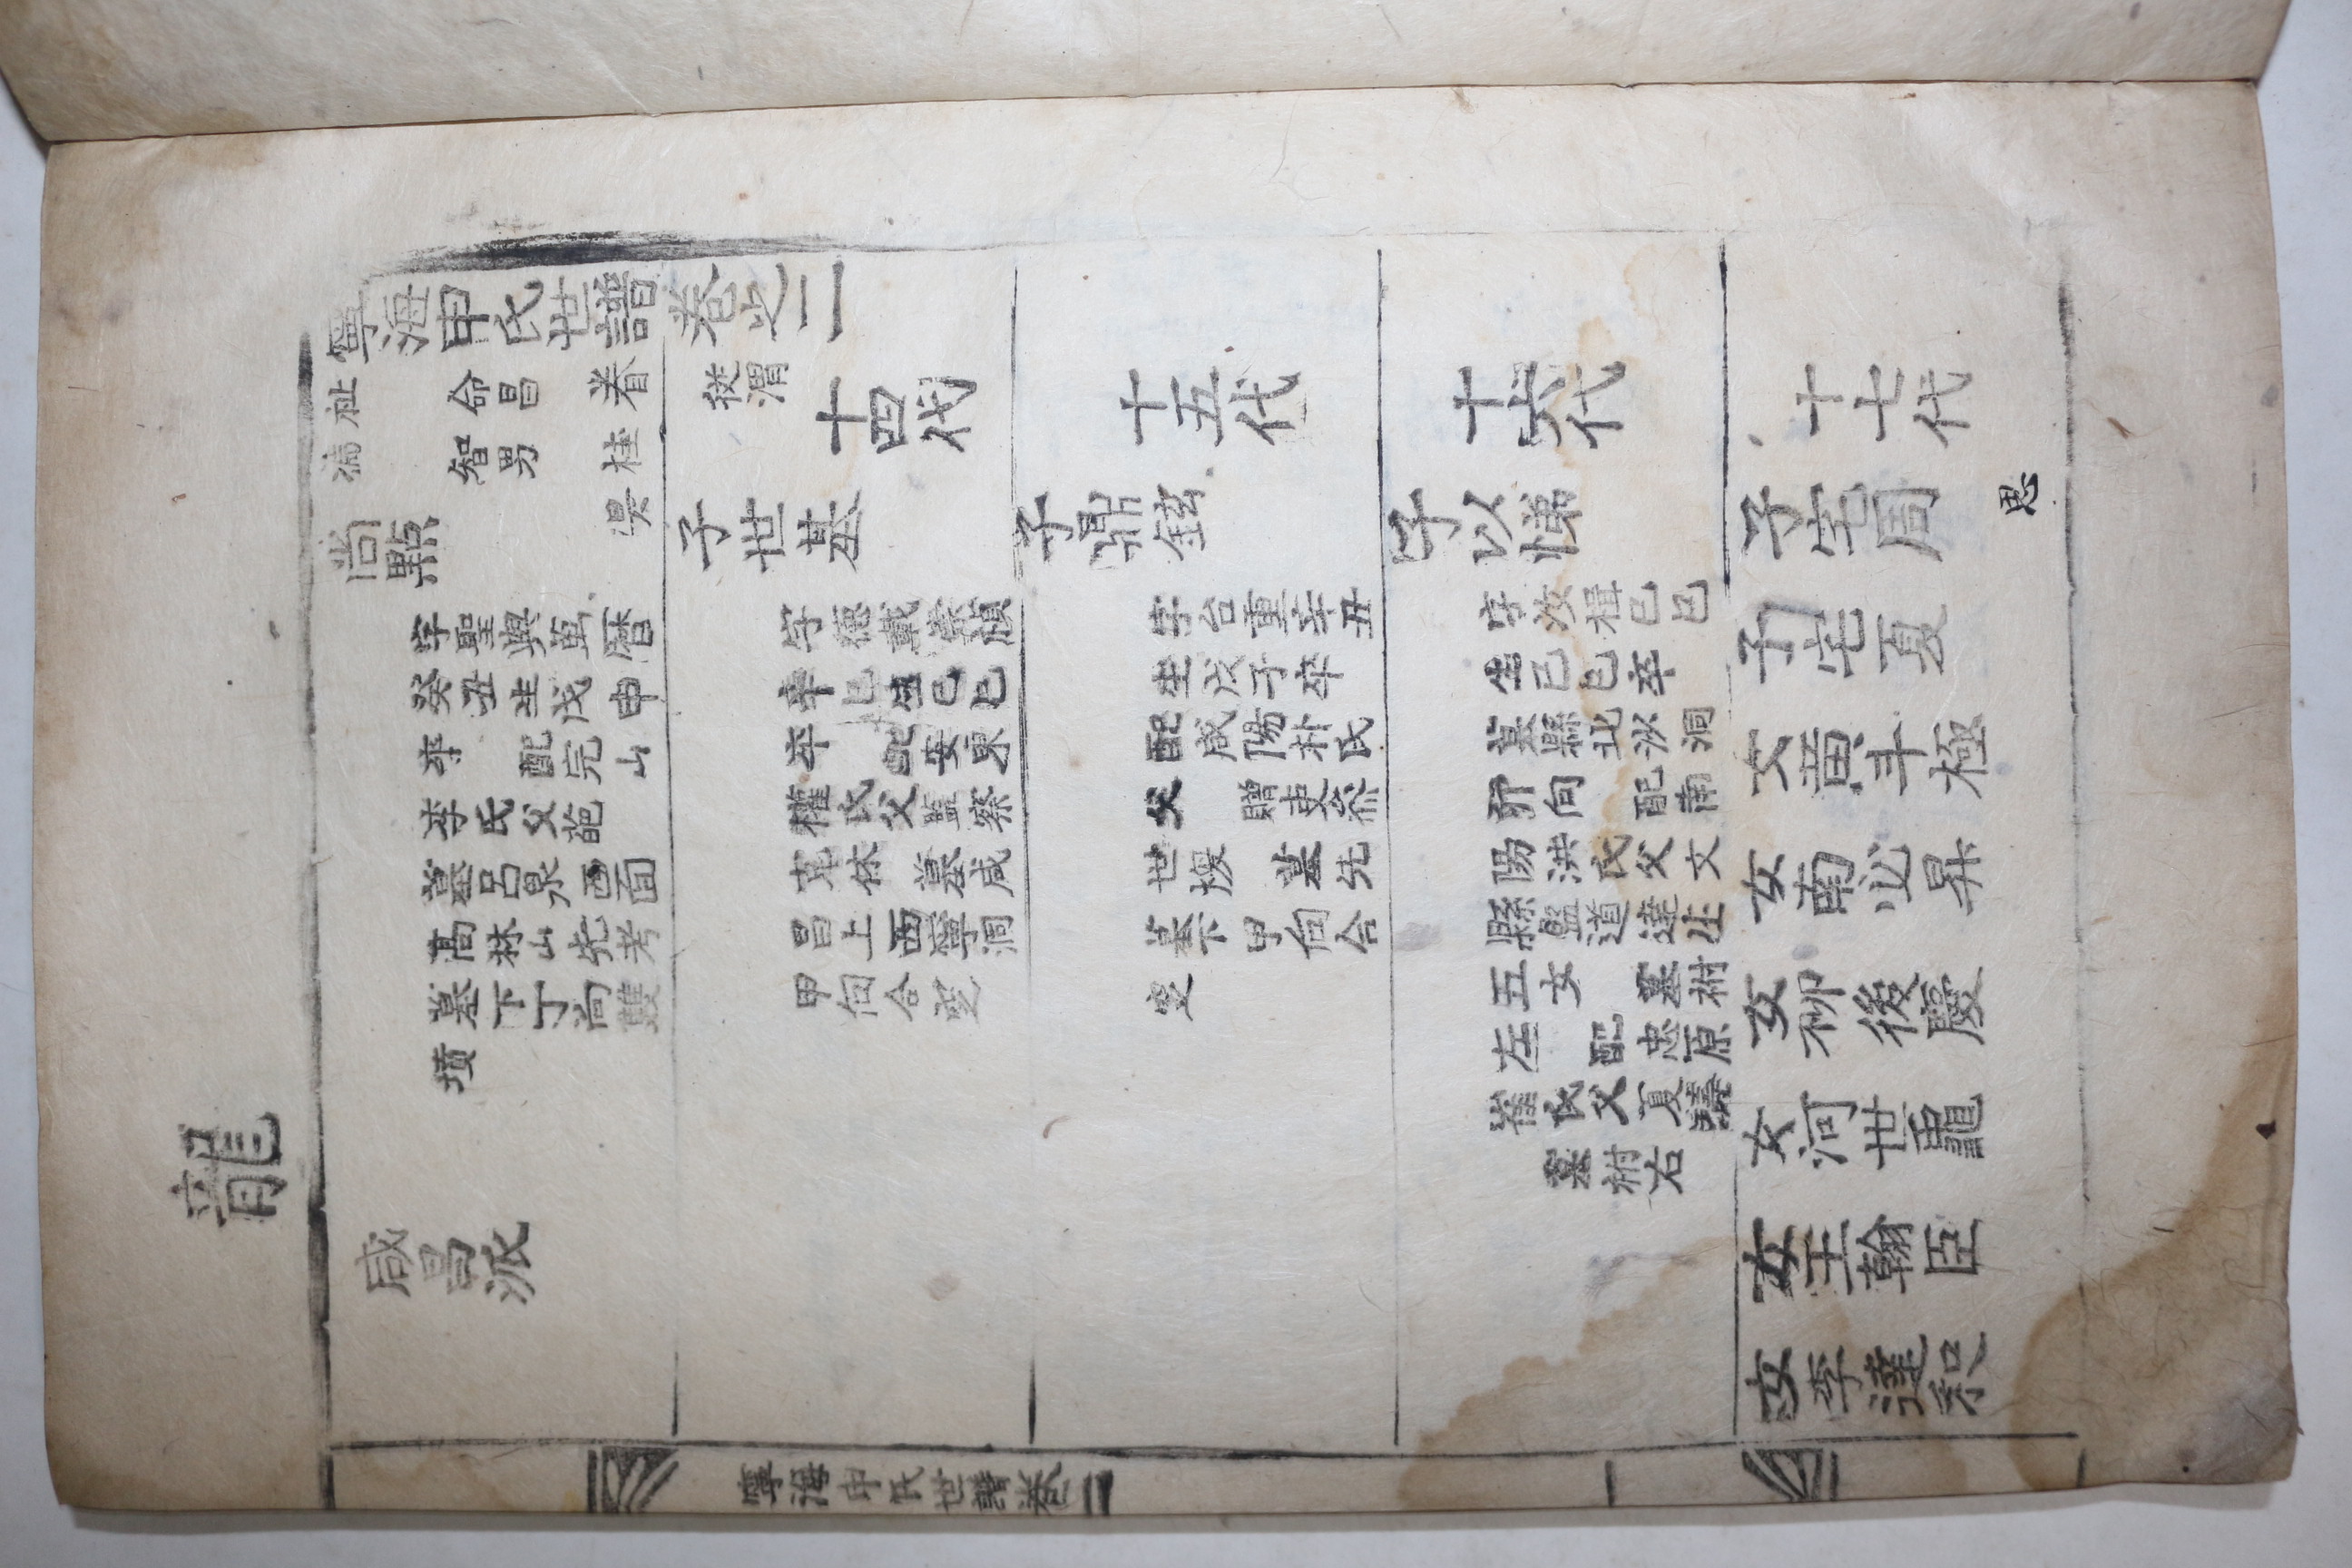 龍
寧海申氏世譜卷之二
祉 命昌 眷 從渭
智男 桂
昊
尚點
字聖與萬曆
癸丑生戊申
卒 配完山
李氏父葩
墓呂泉西面
高林山先考
墓下丁向雙
墳
咸昌派
十四代
子世基
字德載崇禎
辛巳生己巳
卒 配安東
權氏父監察
克休 墓咸
昌上西寧洞
甲向合窆
十五代
子鼎鉉
字台重辛丑
生戊子卒
配咸陽朴氏
父 贈吏參
世楥 墓先
墓下甲向合
窆
十六代
子以悌
字汝楫己巳
生己巳卒
墓縣北沙洞
卯向 配南
陽洪氏父文
縣監道達生
五女 墓祔
左 配忠原
崔氏父夏
墓祔右
十七代
子宅周
思
子宅夏
女黃斗極
女南必昇
女柳後慶
女河世龜
女王翰臣
女李達和
寧海申氏世譜卷二